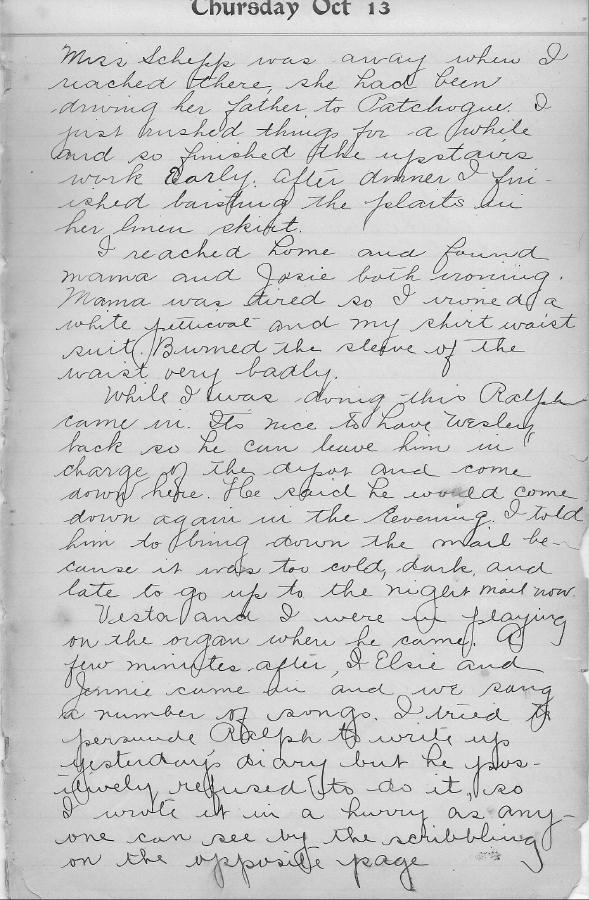 Thursday Oct 13
Miss Schepp was away when I
reached there, she had been
driving her father to Patchogue. I
just rushed things for a while
and so finished the upstairs
work Early. After dinner I fini-
ished basting the plaits in
her linen skirt.
I reached home and found
mama and Josie both ironing.
Mama was tired so I ironed a
white petticoat and my shirt waist
suit. Burned the sleeve of the
waist very badly.
While I was doing this Ralph
came in. Its nice to have Wesley
back so he can leave him in
charge of the depot and come
down here. He said he would come
down again in the Evening. I told
him to bring down the mail be-
cause it was too cold, dark, and
late to go up to the night mail now.
Vesta and I were in playing
on the organ when he came. A
few minutes after, Elsie and
Jennie came in and we sang
a number of songs. I tried to
persuade Ralph to write up
yesterday's diary but he pos-
itively refused to do it, so
I wrote it in a hurry as any-
one can see by the scribbling
on the opposite page